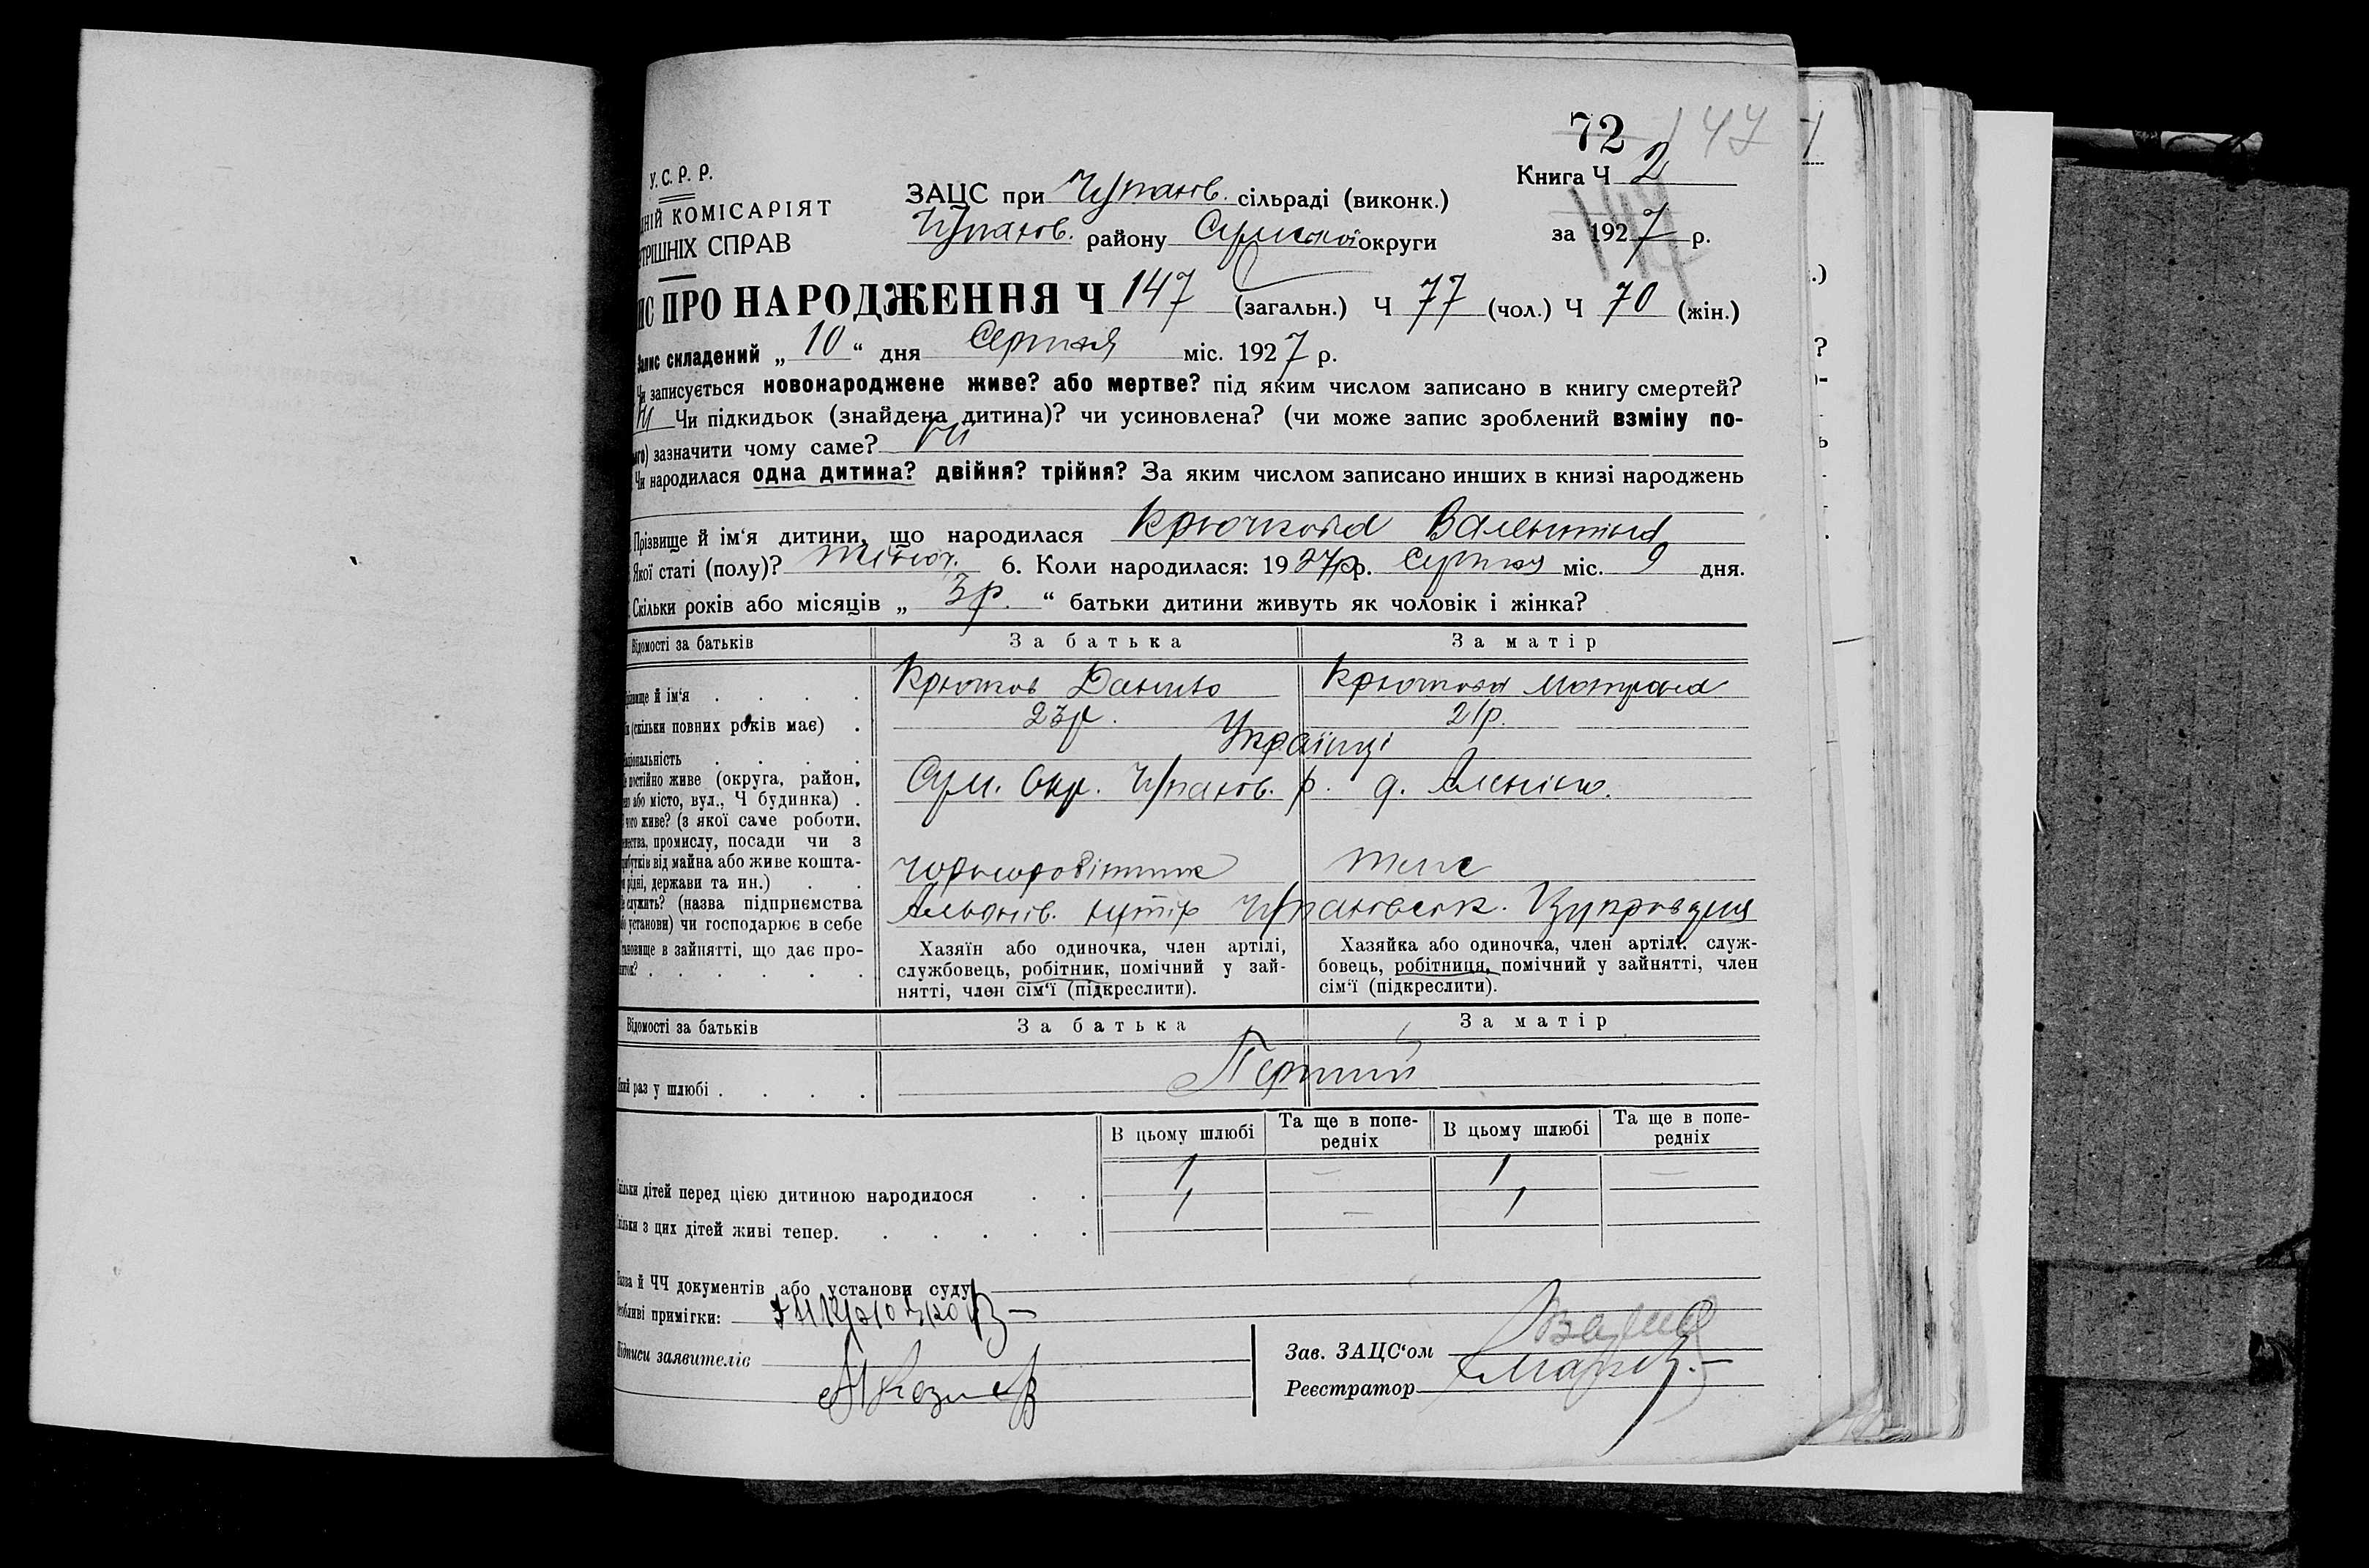 72 147
У.С.Р.Р.
Книга Ч 2
ЗАЦС при Чупахов. сільраді (виконк.)
ДНІЙ КОМІСАРІЯТ
Чупахов. району Сумської округи
за 1927 р.
147
ТРІШНІХ СПРАВ
ИС ПРО НАРОДЖЕННЯ Ч 147 (загальн.) Ч 77 (чол.) Ч 70 (жін.)
Запис складений „10“ дня Серпня міс. 1927 р.
Чи записується новонароджене живе? або мертве? під яким числом записано в книгу смертей?
Ні Чи підкидьок (знайдена дитина)? чи усиновлена? (чи може запис зроблений взміну по-
ого) зазначити чому саме? Ні
Чи народилася одна дитина? двійня? трійня? За яким числом записано инших в книзі народжень
Прізвище й ім‘я дитини, що народилася Крючкова Валентина
Якої статі (полу)? жіноч. 6. Коли народилася: 1927р р. Серпня міс. 9 дня.
Скільки років або місяців „ 3р. “ батьки дитини живуть як чоловік і жінка?
Відомості за батьків За батька За матір
різвище й ім‘я . . . . Крючков Данило Крючкова Мотрона
ік (скільки повних років має) . 23р. 21р.
аціональність . . . . Українці
е постійно живе (округа, район,
або місто, вул., Ч будинка) . Сум. Окр. Чупахов. р.
чого живе? (з якої саме роботи,
ества, промислу, посади чи з
рибутків від майна або живе кошта-
рідні, держави та ин.) . . Чорноробітник теж
е служить? (назва підприємства
бо установи) чи господарює в себе хутір Чупаховськ. Цукрозавода
тановище в зайнятті, що дає про-
иток? . . . . . .
Хазяїн або одиночка, член артілі,
службовець, робітник, помічний у зай-
нятті, член сім‘ї (підкреслити).
Хазяйка або одиночка, член артілі, служ-
бовець, робітниця, помічний у зайнятті, член
сім‘ї (підкреслити).
Відомості за батьків За батька За матір
кий раз у шлюбі . . . . Перший
В цьому шлюбі Та ще в попе-редніх В цьому шлюбі Та ще в попе-редніх
кільки дітей перед цією дитиною народилося . . 1 — 1 —
кільки з цих дітей живі тепер. . . . . . 1 — 1
азва й ЧЧ документів або установи суду
собливі примігки:
ідписи заявителів
Зав. ЗАЦС‘ом
Реєстратор